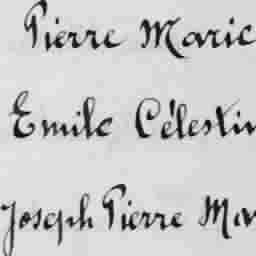 Pierre Marie
Emile Célestin
Joseph Pierre Ma